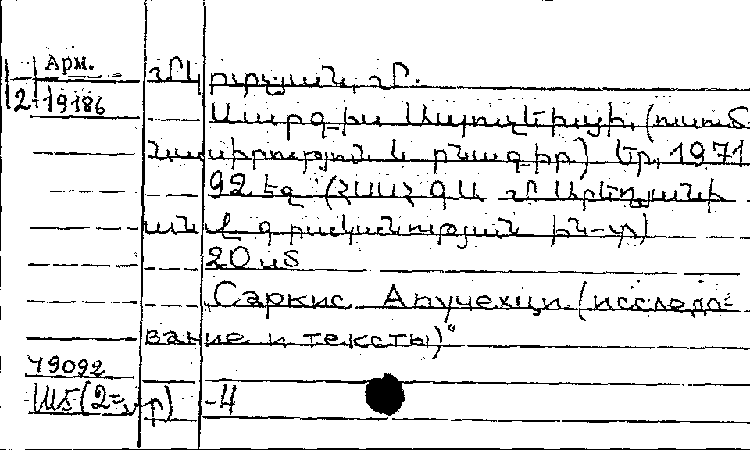 Арм.
2-19186
Մկրտչյան, Մ.
Սարգիս Ապուչեխցի, (ուսում-
նասիրություն և բնագիր) Եր, 1971
92 էջ (ՀՍՍՀ ԳԱ Մ Աբեղյանի
անվ գրականության ին-տ)
20 սմ
„Саркис Апучехци (исследо-
вание и тексты)“
49092
-4